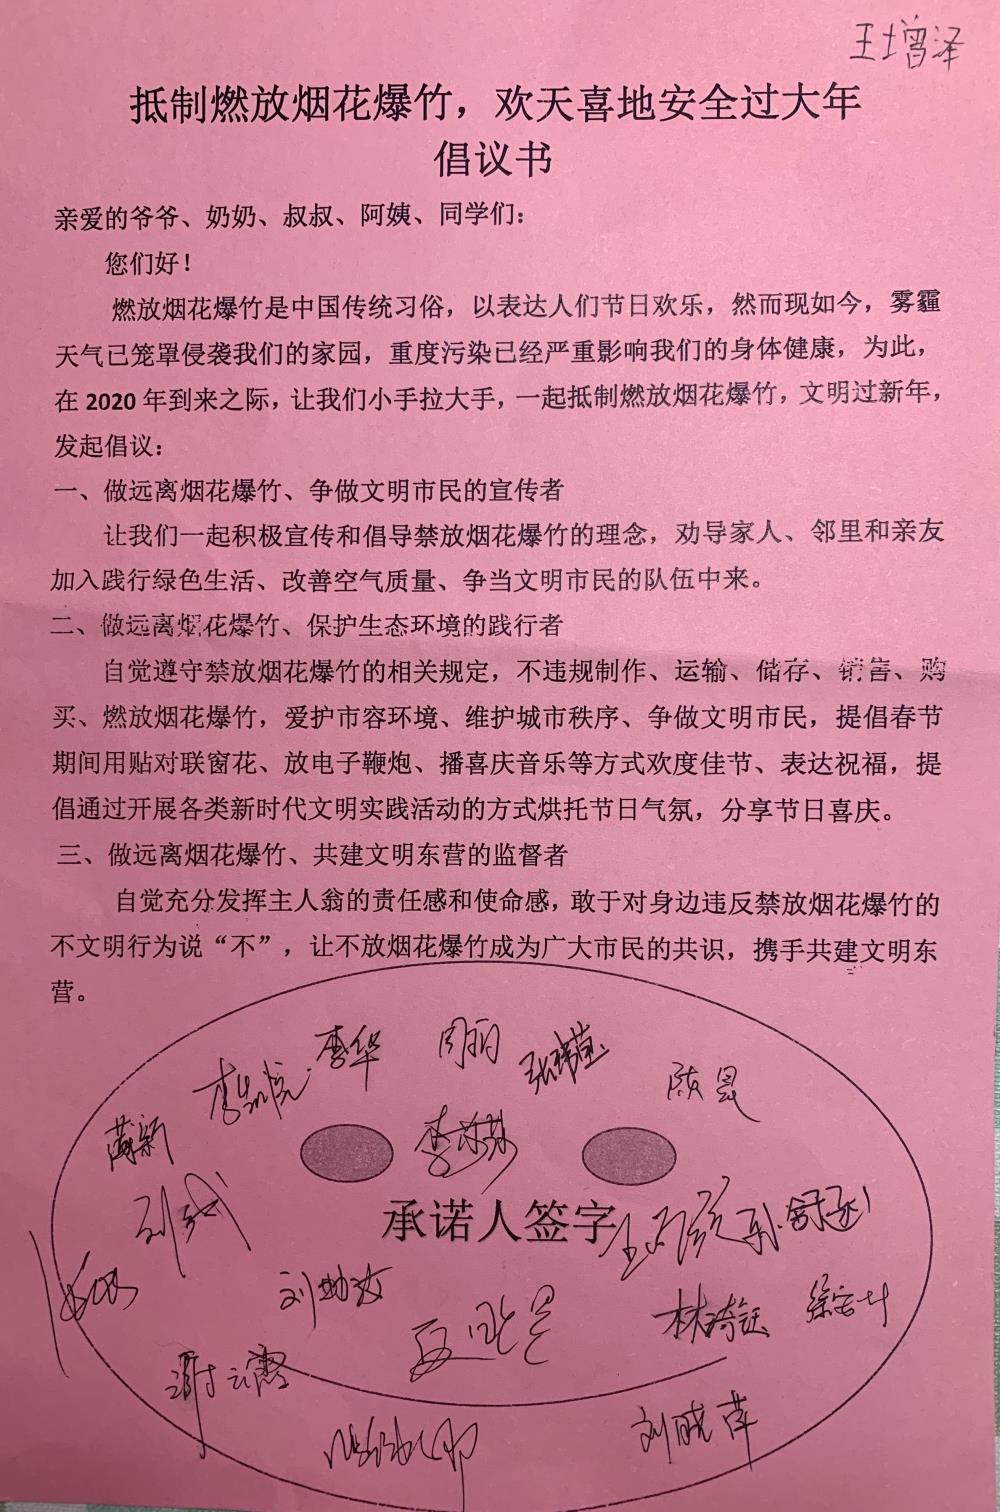 王增泽
抵制燃放烟花爆竹，欢天喜地安全过大年
倡议书
亲爱的爷爷、奶奶、叔叔、阿姨、同学们：
您们好！
燃放烟花爆竹是中国传统习俗，以表达人们节日欢乐，然而现如今，雾霾
天气已笼罩侵袭我们的家园，重度污染已经严重影响我们的身体健康，为此，
在 2020 年到来之际，让我们小手拉大手，一起抵制燃放烟花爆竹，文明过新年，
发起倡议：
一、做远离烟花爆竹、争做文明市民的宣传者
让我们一起积极宣传和倡导禁放烟花爆竹的理念，劝导家人、邻里和亲友
加入践行绿色生活、改善空气质量、争当文明市民的队伍中来。
二、做远离烟花爆竹、保护生态环境的践行者
自觉遵守禁放烟花爆竹的相关规定，不违规制作、运输、储存、销售、购
买、燃放烟花爆竹，爱护市容环境、维护城市秩序、争做文明市民，提倡春节
期间用贴对联窗花、放电子鞭炮、播喜庆音乐等方式欢度佳节、表达祝福，提
倡通过开展各类新时代文明实践活动的方式烘托节日气氛，分享节日喜庆。
三、做远离烟花爆竹、共建文明东营的监督者
自觉充分发挥主人翁的责任感和使命感，敢于对身边违反禁放烟花爆竹的
不文明行为说“不”，让不放烟花爆竹成为广大市民的共识，携手共建文明东
营。
李华
周丽
陈昊
承诺人签字
林琦钰
刘晓萍